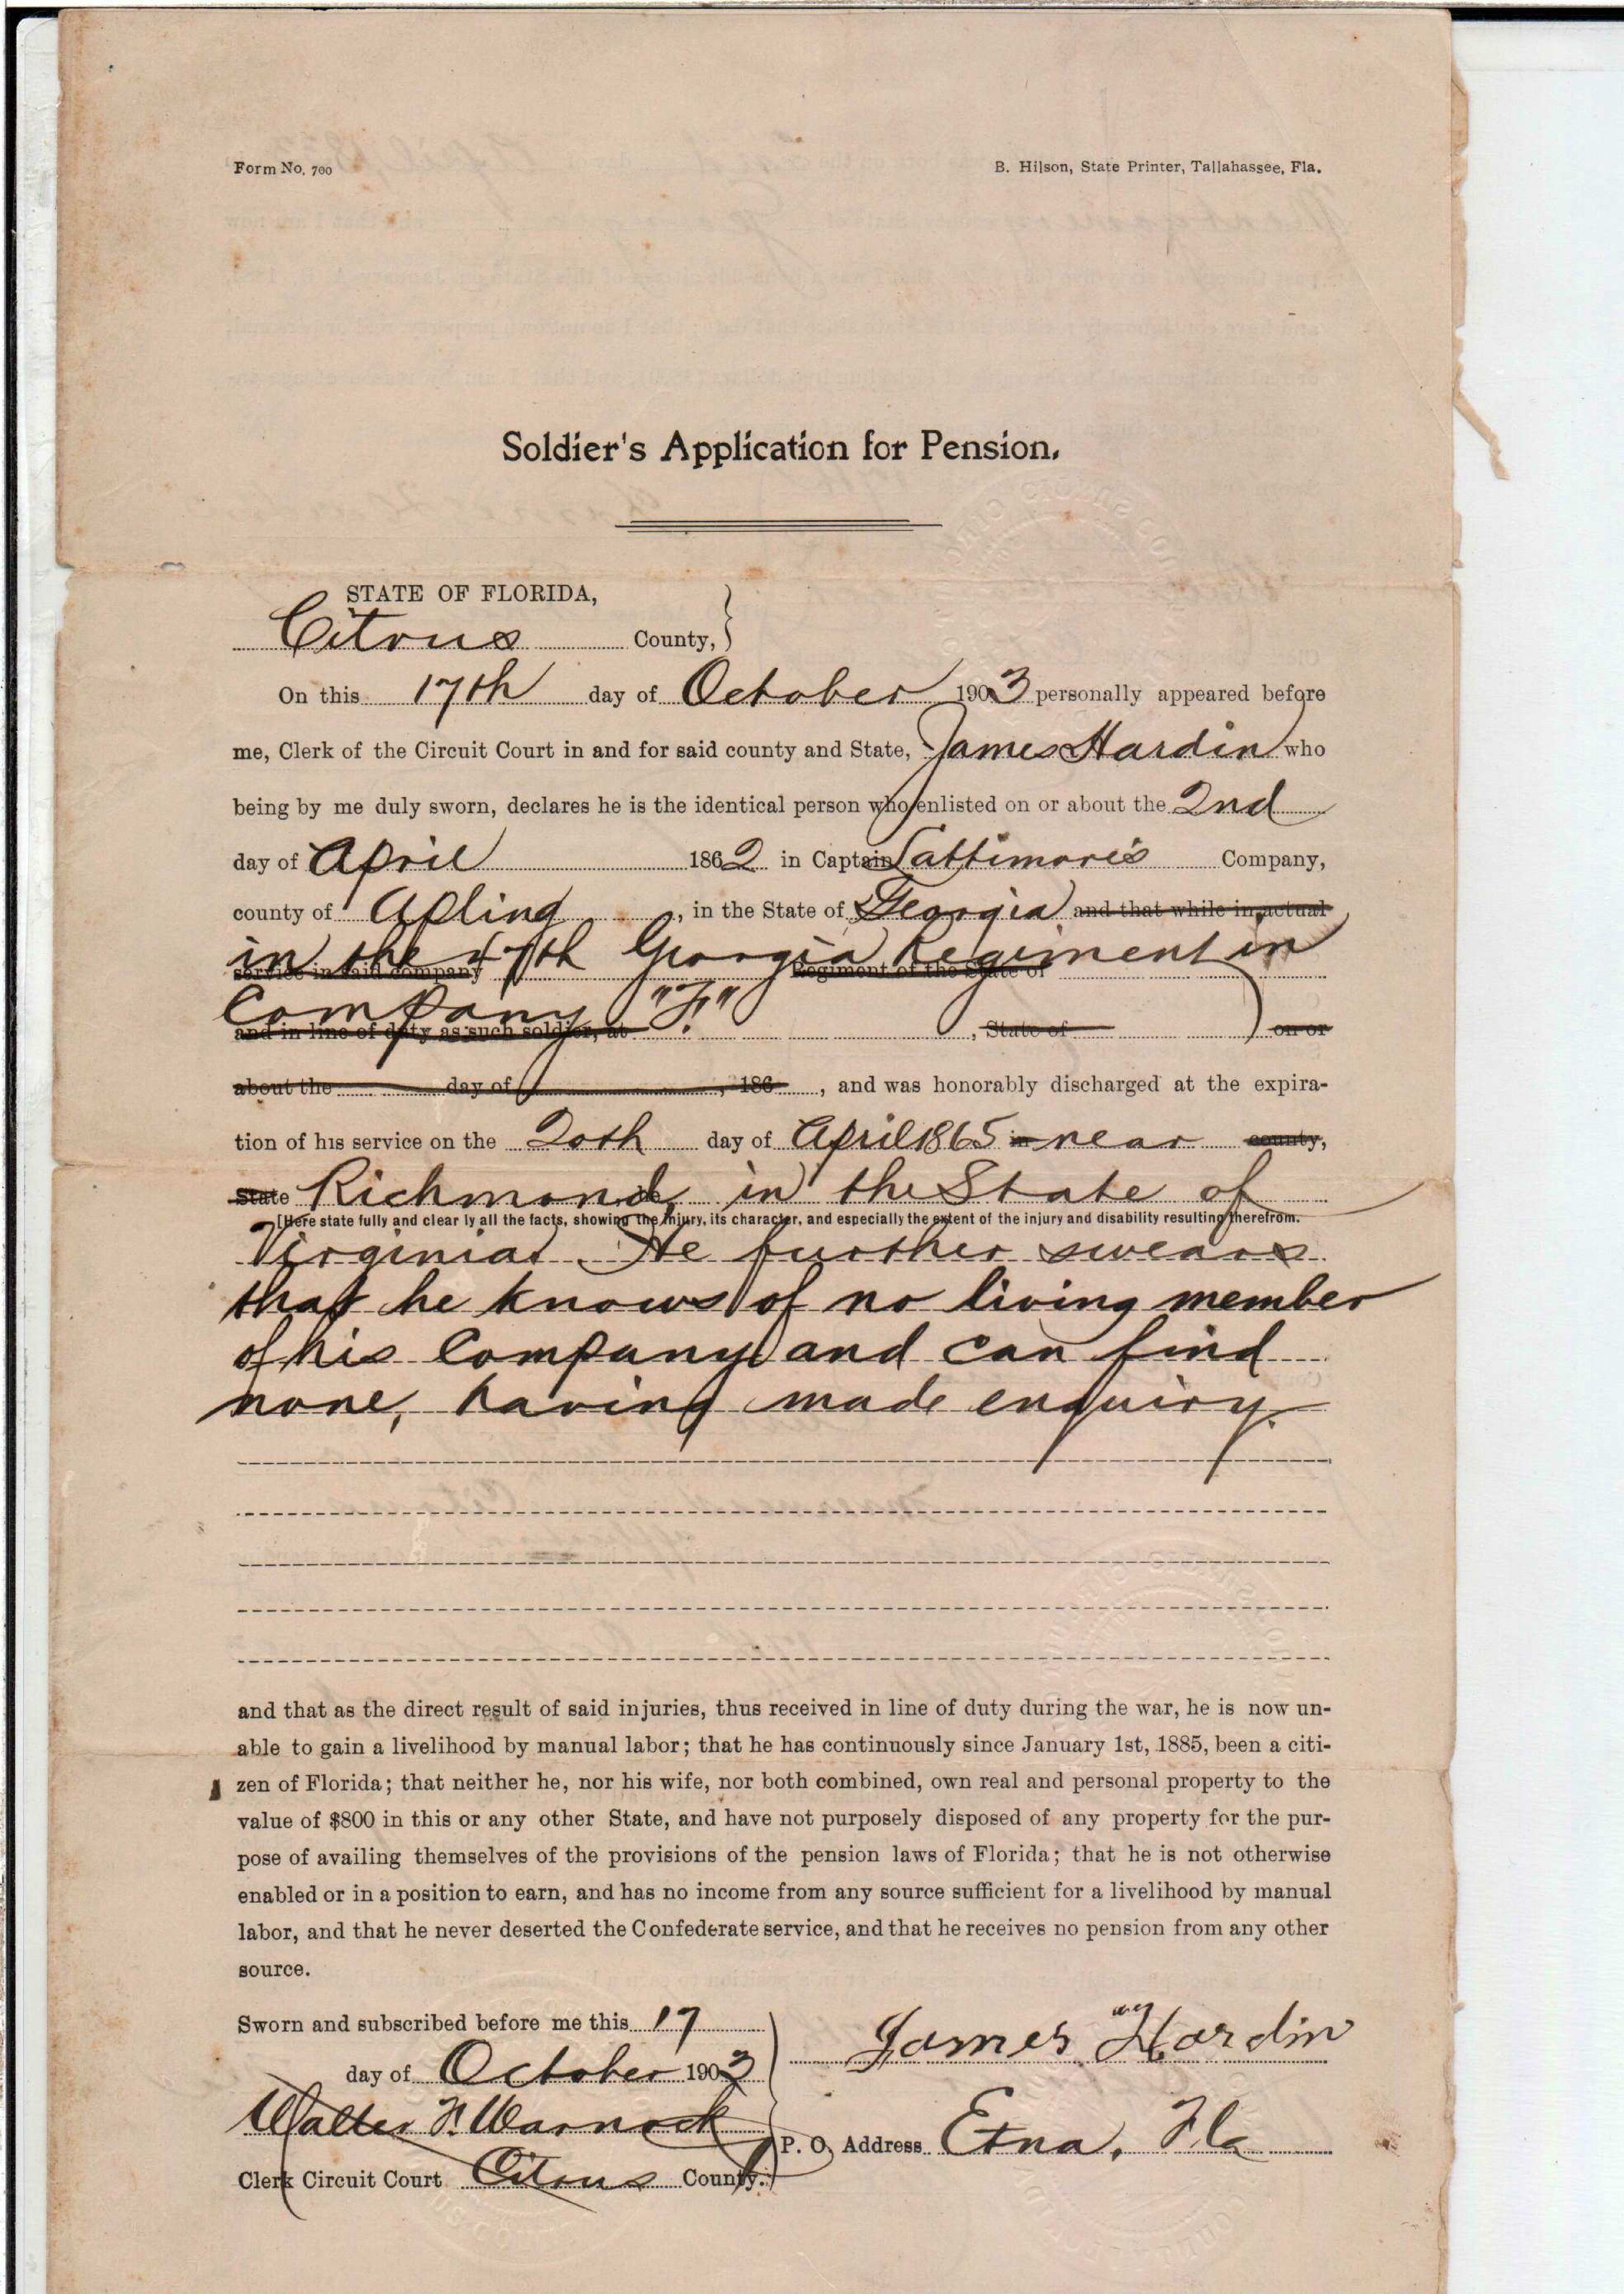 Form No. 700
B. Hilson, State Printer, Tallahassee, Fla.
Soldier's Application for Pension.
STATE OF FLORIDA,
Citrus County,
On this 17th day of October 1903 personally appeared before
me, Clerk of the Circuit Court in and for said county and State, James Hardin who
being by me duly sworn, declares he is the identical person who enlisted on or about the 2nd
day of April 1862 in Captain Lattimore's Company,
county of Apling, in the State of Georgia and that while in actual
in the 47th Georgia Regiment in
service in said company Regiment of the State of
Company "F"
and in line of duty as such soldier, at , State of on or
about the day of , 186 , and was honorably discharged at the expira-
tion of his service on the 20th day of April 1865 in near county,
State Richmond, in the State of
[Here state fully and clear ly all the facts, showing the injury, its character, and especially the extent of the injury and disability resulting therefrom.
Virginia. He further swears
that he knows of no living member
of his Company and can find
none, having made enquiry.
and that as the direct result of said injuries, thus received in line of duty during the war, he is now un-
able to gain a livelihood by manual labor; that he has continuously since January 1st, 1885, been a citi-
zen of Florida; that neither he, nor his wife, nor both combined, own real and personal property to the
value of $800 in this or any other State, and have not purposely disposed of any property for the pur-
pose of availing themselves of the provisions of the pension laws of Florida; that he is not otherwise
enabled or in a position to earn, and has no income from any source sufficient for a livelihood by manual
labor, and that he never deserted the Confederate service, and that he receives no pension from any other
source.
Sworn and subscribed before me this 17
day of October 1903
James Hardin
Walter F. Warnock
P. O. Address Etna, Fla
Clerk Circuit Court Citrus County.